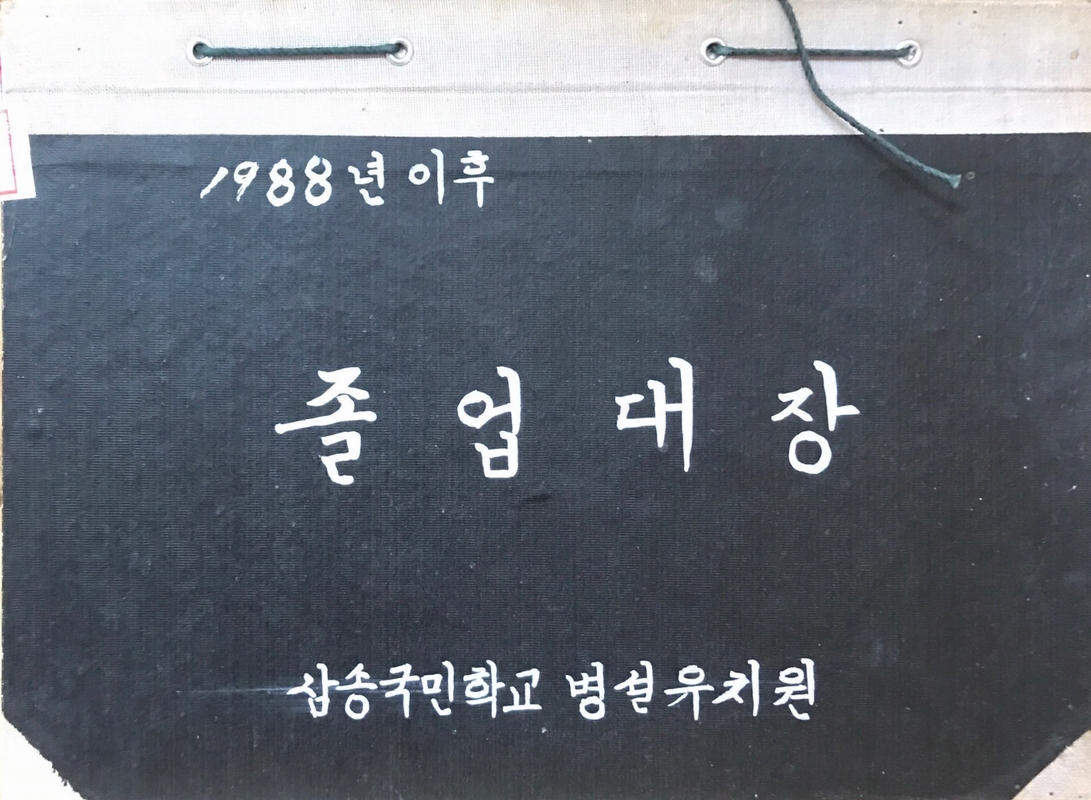 1988년 이후
졸업대장
삼송국민학교 병설유치원